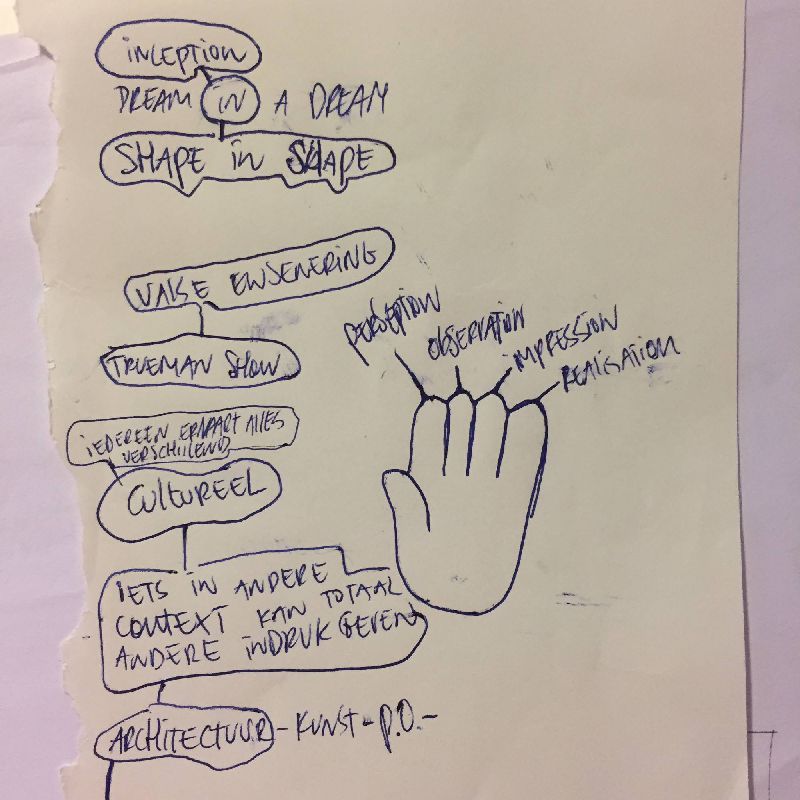 INCEPTION
DREAM IN A DREAM
SHAPE IN SHAPE
VALSE ENSENERING
TRUEMAN SHOW
IEDEREEN ERVAART ALLES
VERSCHILLEND
CULTUREEL
IETS IN ANDERE
CONTEXT KAN TOTAAL
ANDERE INDRUK GEVEN
ARCHITECTUUR - KUNST - P.O. -
PERCEPTION
OBSERVATION
IMPRESSION
REALISATION